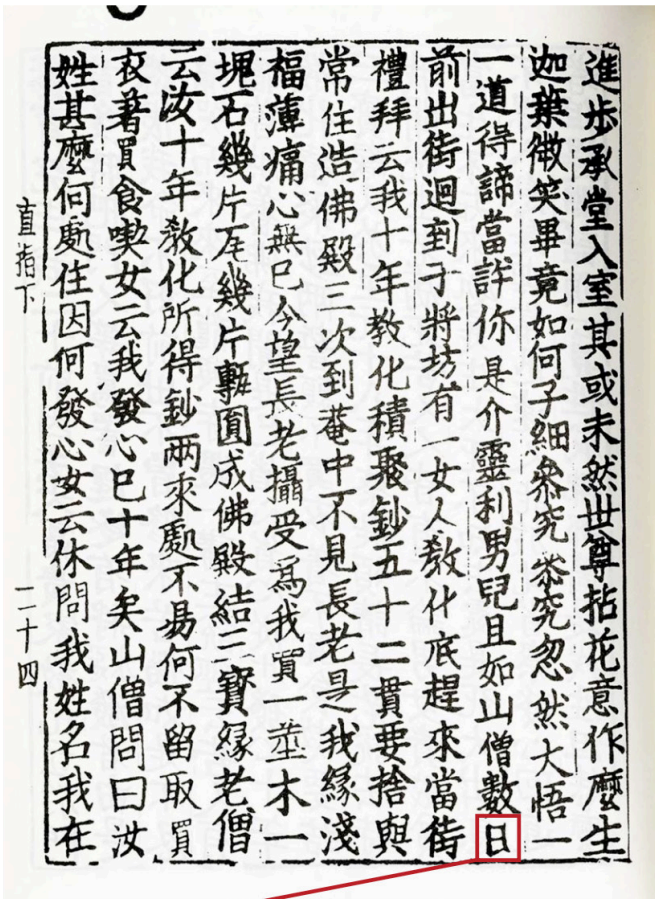 進步承堂入室其或未然世尊拈花意作麼生
迦葉微笑畢竟如何子細叅究叅究忽然大悟一
一道得諦當許你是介靈利男兒且如山僧數日
前出街迴到于將坊有一女人教化底趕來當街
禮拜云我十年教化積聚鈔五十二貫要捨與
常住造佛殿三次到菴中不見長老是我緣淺
福薄痛心無已今望長老攝受爲我買一莖木一
塊石幾片瓦幾片甎圓成佛殿結三寶緣老僧
云汝十年教化所得鈔兩來處不易何不留取買
衣著買食喫女云我發心已十年矣山僧問曰汝
姓甚麼何處住因何發心女云休問我姓名我在
直指下
二十四